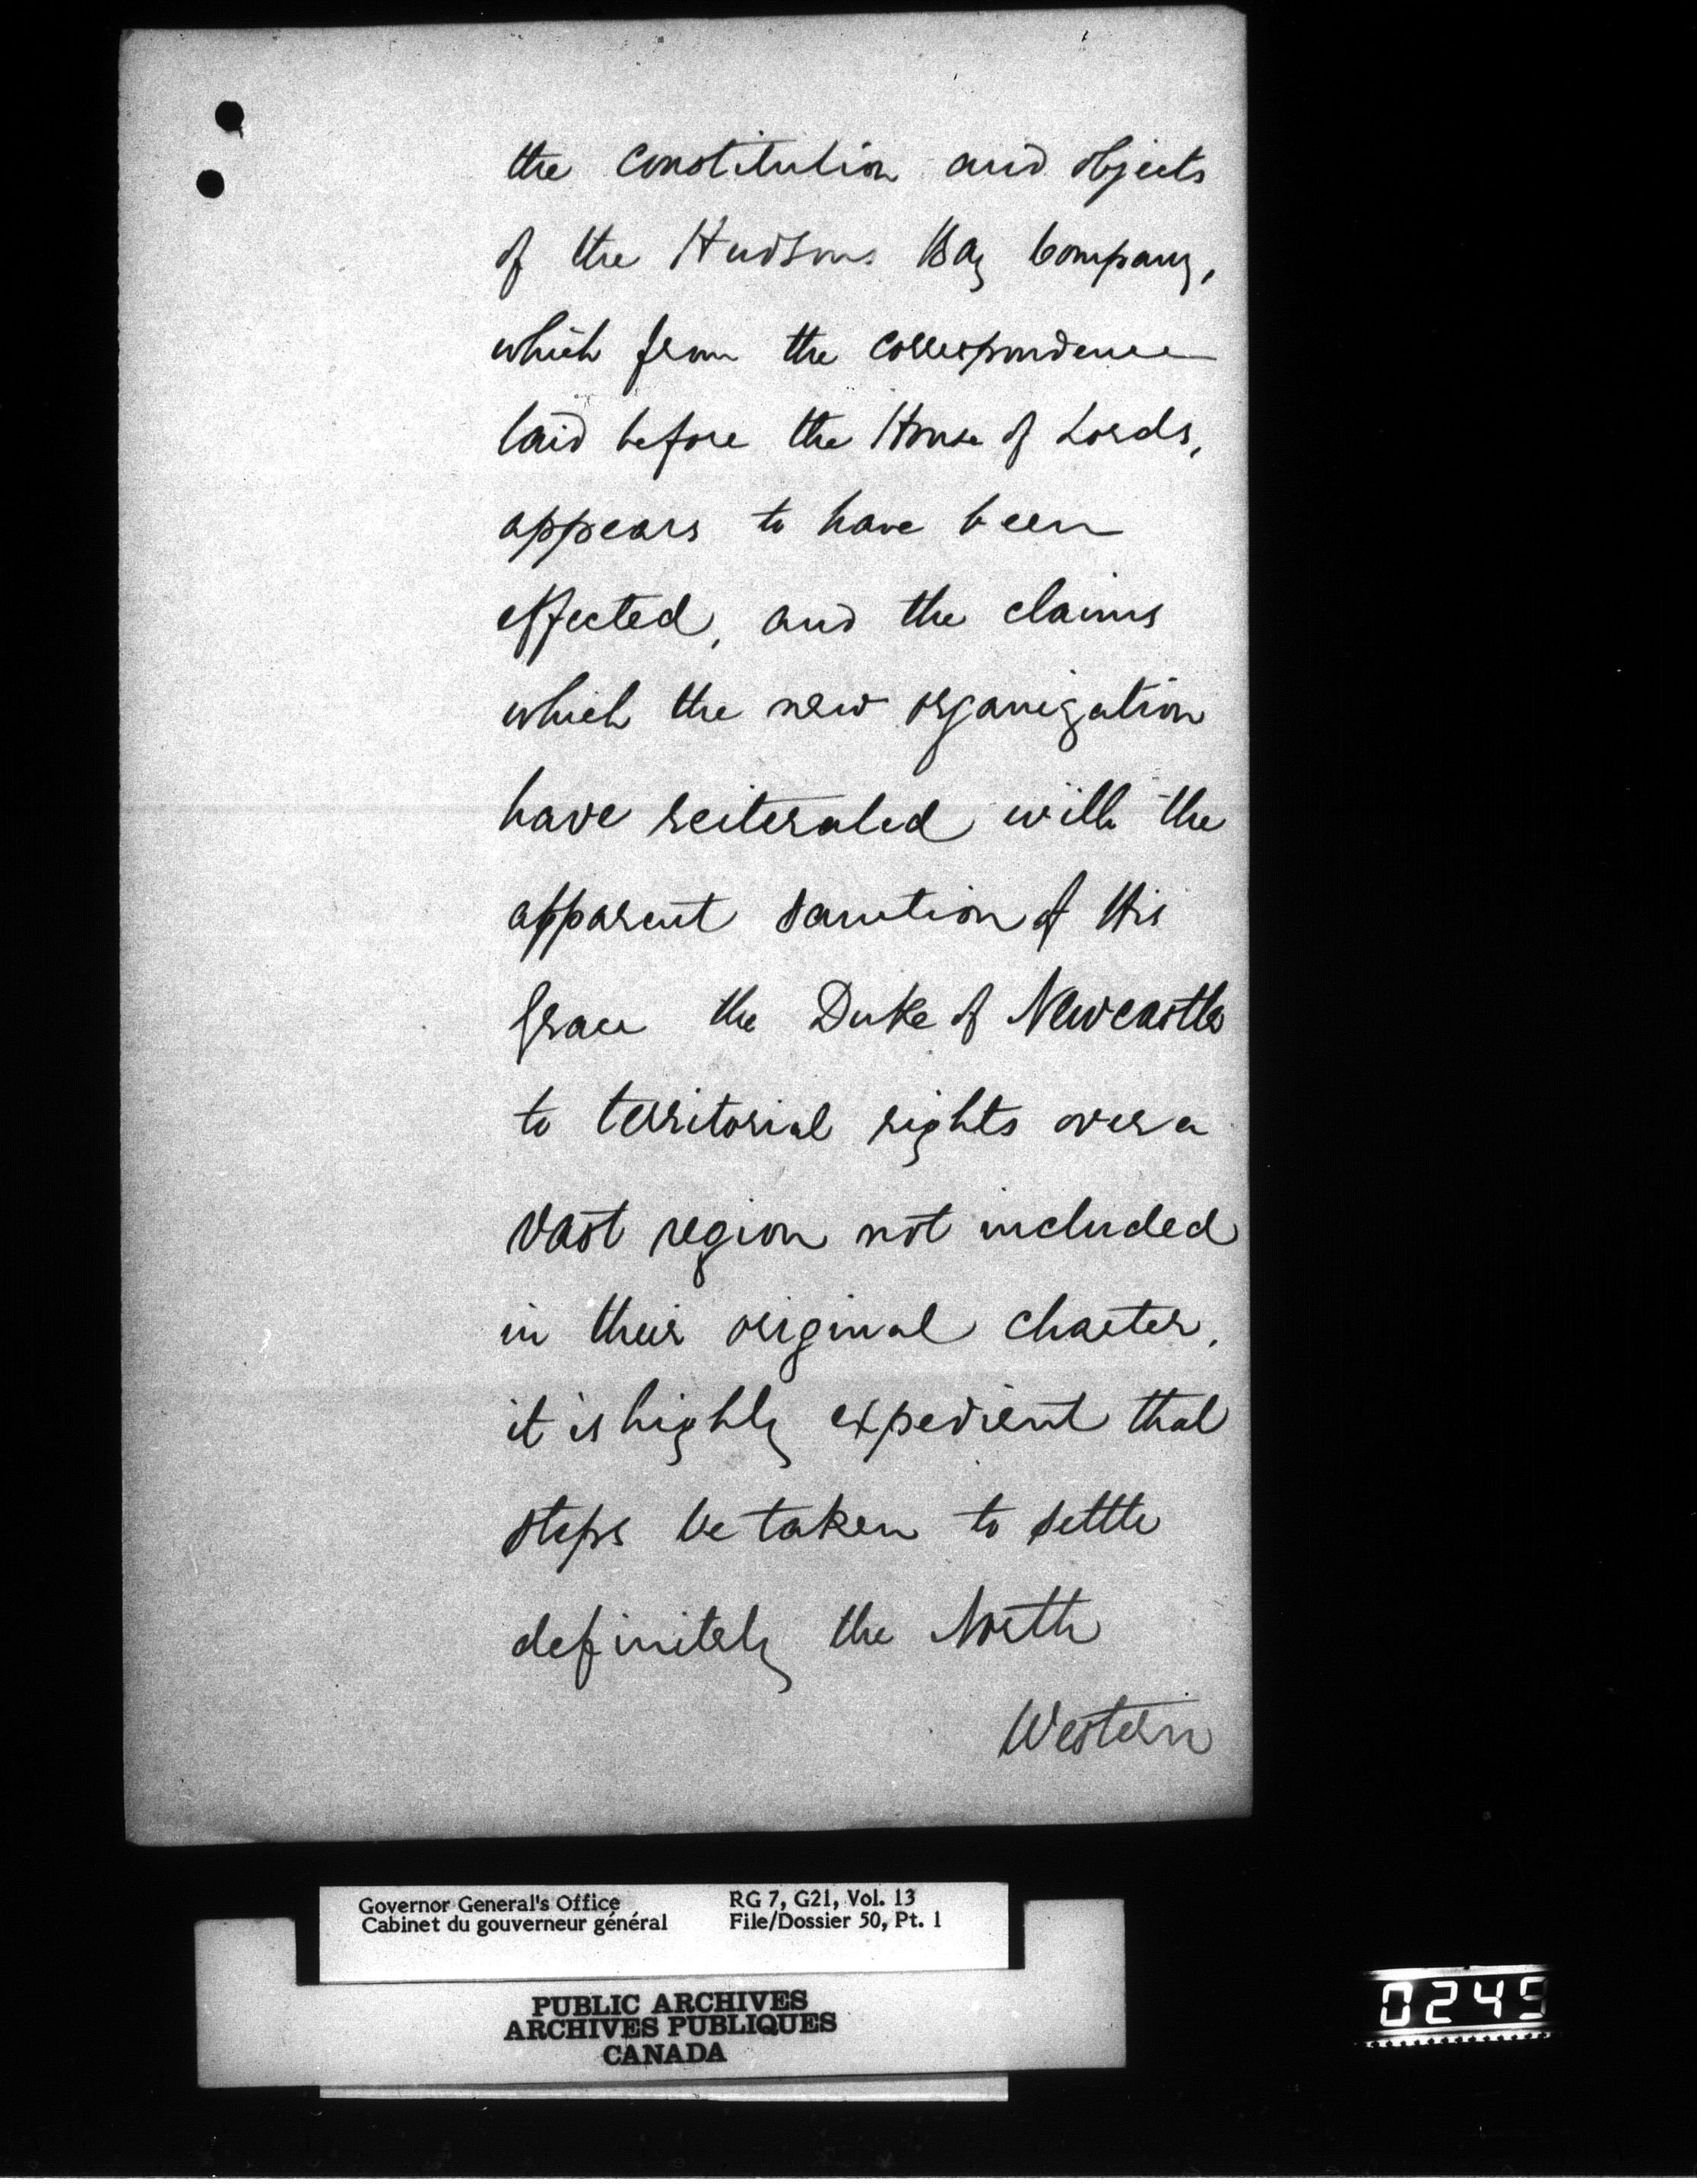 the constitution and objects
of the Hudsons Bay Company,
which from the correspondence
laid before the House of Lords,
appears to have been
effected, and the claims
which the new organization
have reiterated with the
apparent sanction of His
Grace the Duke of Newcastle
to territorial rights over a
vast region not included
in their original charter,
it is highly expedient that
steps be taken to settle
definitely the North
Western
Governor General's Office RG 7, G21, Vol. 13
Cabinet du gouverneur général File/Dossier 50, Pt. 1
PUBLIC ARCHIVES
ARCHIVES PUBLIQUES
CANADA
0245